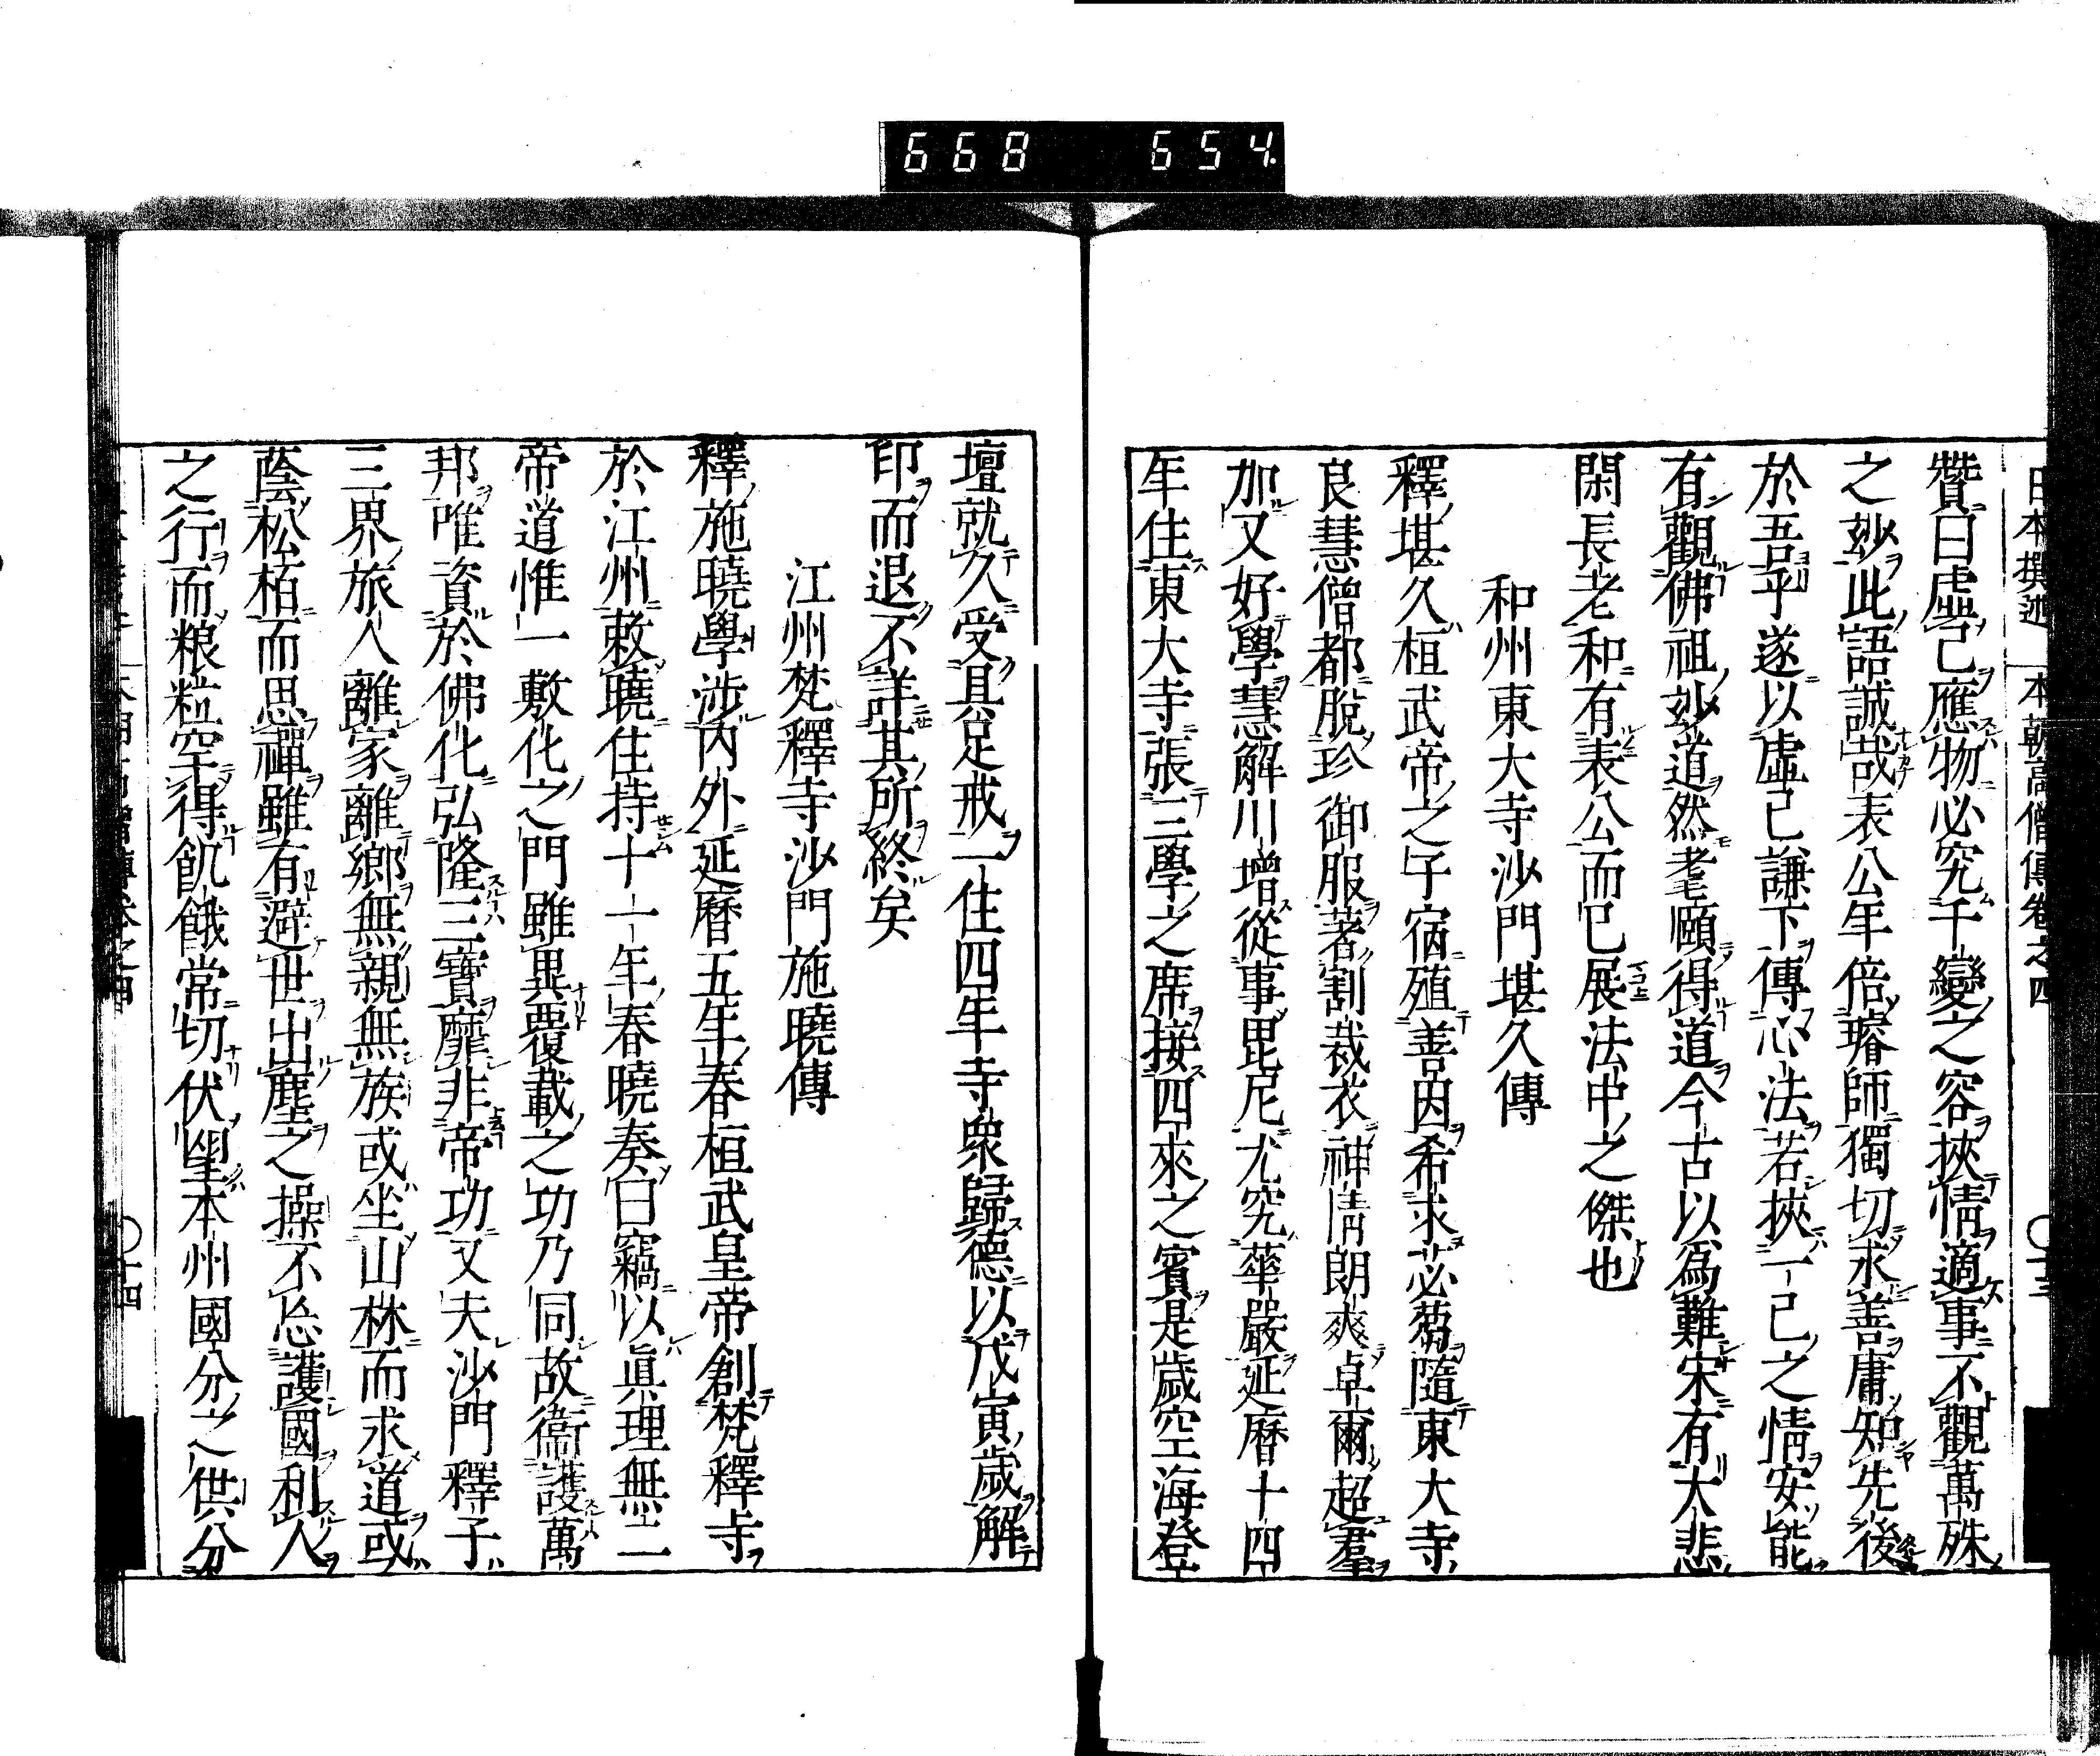 668 654
日本撰述 本朝高僧傳卷之四 〇十三
贊曰虛己應物必究千變之容挾情適事不觀萬殊
之妙此語誠哉表公年倍璿師獨切求善庸知先後
於吾乎遂以虛己謙下傳心法若挾一己之情安能
有觀佛祖妙道然耄頤得道今古以爲難宋有大悲
閑長老和有表公而已展法中之傑也
和州東大寺沙門堪久傳
釋堪久桓武帝之子宿殖善因希求苾蒭隨東大寺
良慧僧都脫珍御服著割裁衣神情朗爽卓爾超羣
加又好學慧解川增從事毘尼尤究華嚴延曆十四
年住東大寺張三學之席接四來之賓是歲空海登
壇就久受具足戒一住四年寺衆歸德以戊寅歲解
印而退不詳其所終矣
江州梵釋寺沙門施曉傳
釋施曉學涉內外延曆五年春桓武皇帝創梵釋寺
於江州敕曉住持十一年春曉奏曰竊以眞理無二
帝道惟一敷化之門雖異覆載之功乃同故衞護萬
邦唯資於佛化弘隆三寶靡非帝功又夫沙門釋子
三界旅人離家離鄉無親無族或坐山林而求道或
蔭松栢而思禪雖有避世出塵之操不忘護國利人
之行而粮粒罕得飢餓常切伏望本州國分之供分
〇十四